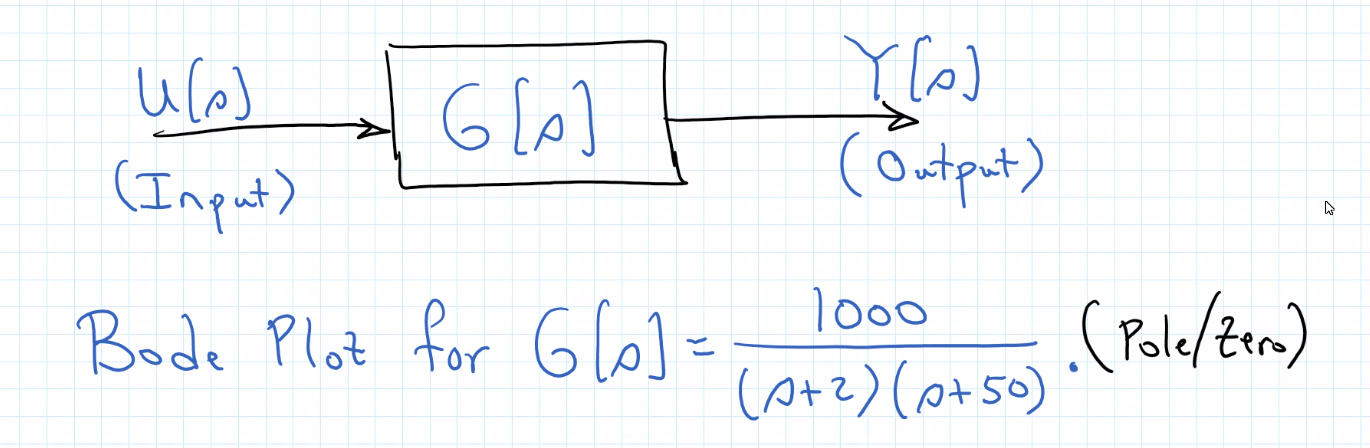 U[s] G[s] Y[s]
(Input) (Output)
Bode Plot for G[s] = 1000 / (s+2)(s+50) . (Pole/Zero)